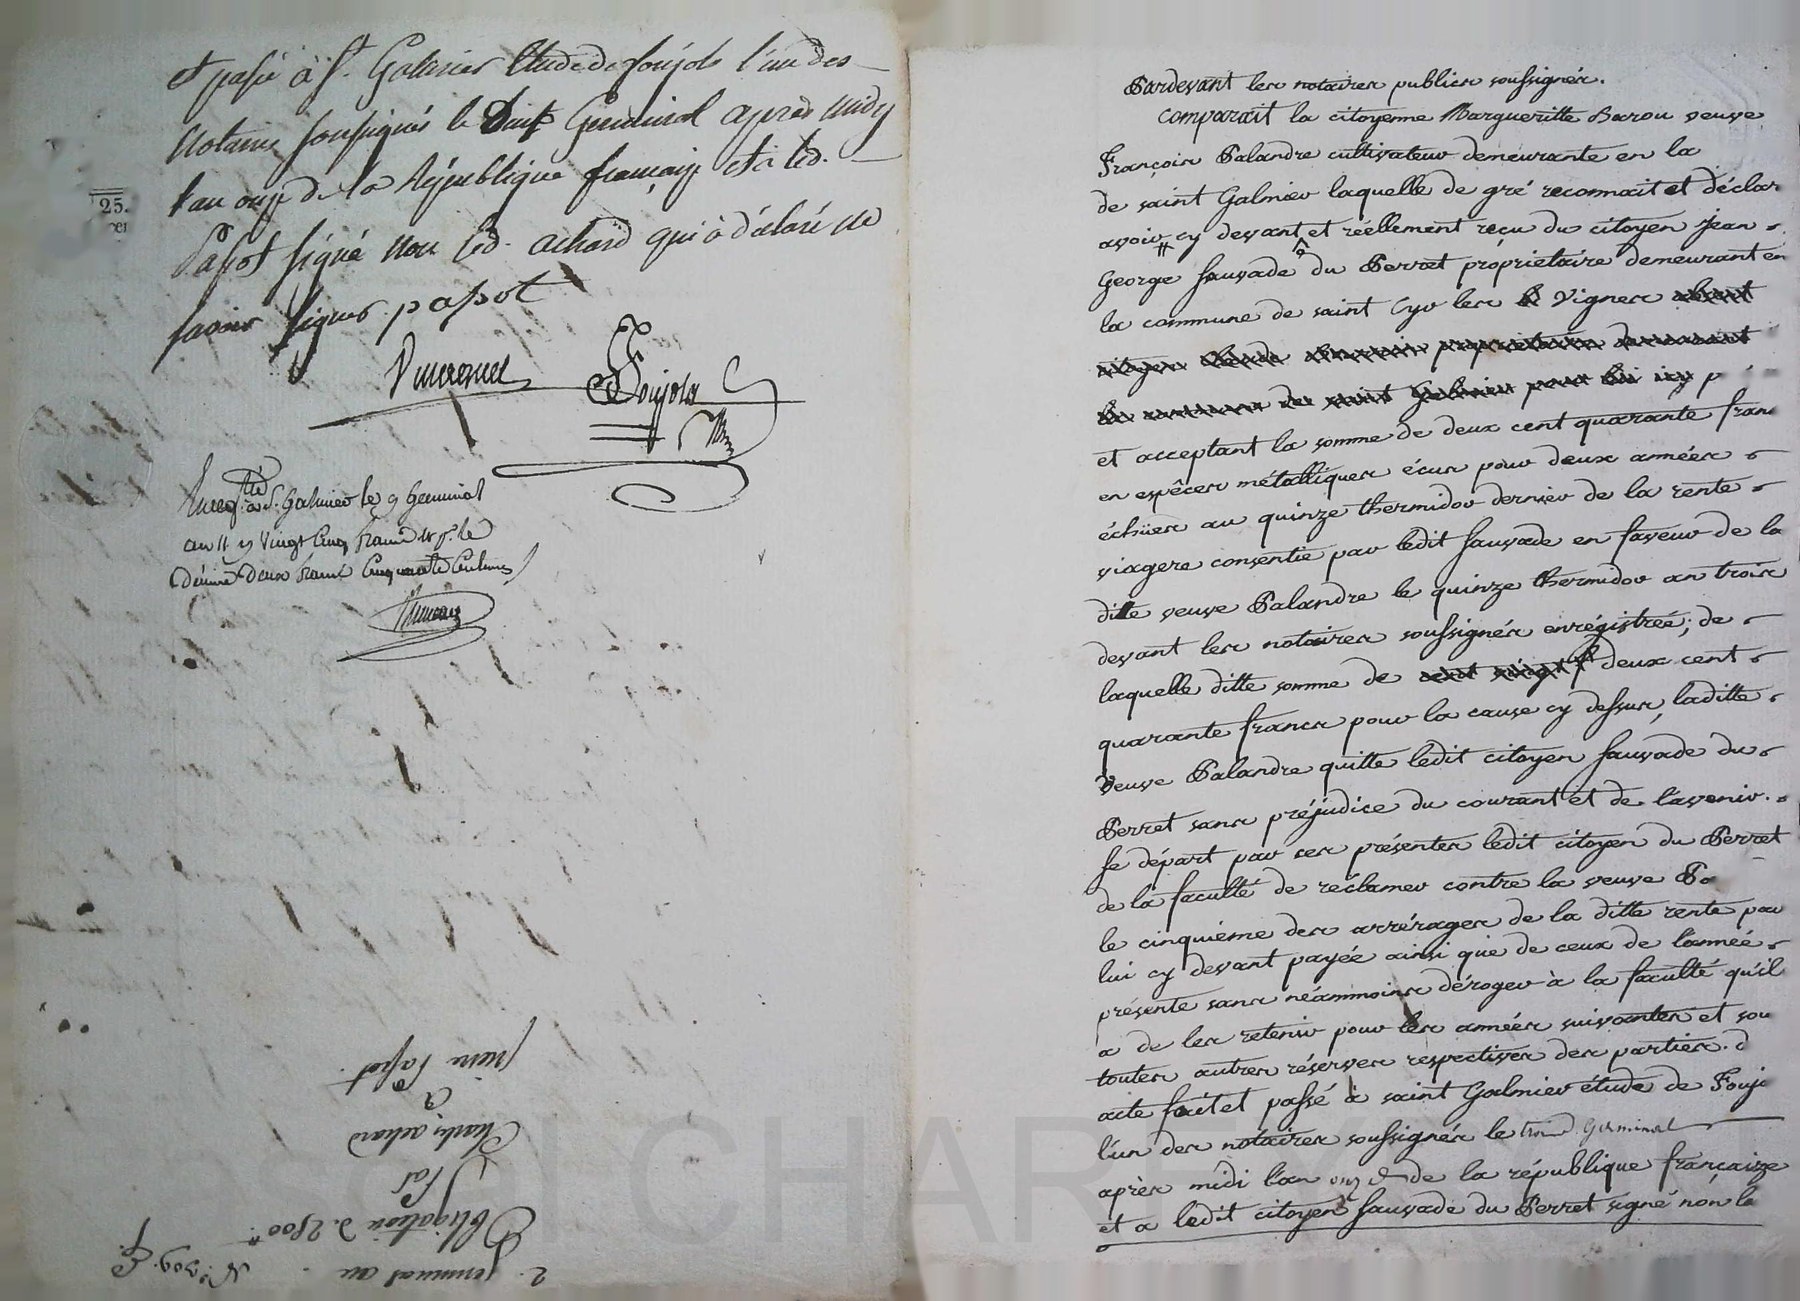 et passé à St. Galmier Etude de foujols l'un des
Notaires soussignés le huit Germinal après midy
l'an onze de la République française et à led.
Papot signé non led. achard qui à déclaré ne
savoir signer. papot
foujols
25.
Enregtré à St. Galmier le 9 Germinal
an 11 Vingt Cinq francs le
Décime deux francs Cinquante Centimes
Pardevant les notaires publics soussignés.
Comparait la citoyenne Margueritte Barou veuve
François Palandre cultivateur demeurante en la
de saint Galmier laquelle de gré reconnait et déclar
avoir cy devant et réellement reçu du citoyen Jean
George sauvade du Perret propriétaire demeurant en
la commune de saint Cyr les Vignes absent
citoyen propriétaire demeurant
de saint Galmier pour lui icy p
et acceptant la somme de deux cent quarante franc
en espêces métalliques écus pour deux années
échües au quinze thermidor dernier de la rente
viagere consentie par ledit sauvade en faveur de la
ditte veuve Palandre le quinze thermidor an trois
devant les notaires soussignés enrégistrée; de
laquelle ditte somme de cent vingt f deux cent
quarante francs pour la cause cy dessus, laditte
Veuve Palandre quitte ledit citoyen sauvade du
Perret sans préjudice du courant et de l'avenir.
se départ par ces présentes ledit citoyen du Perret
de la faculté de réclamer contre la veuve Pa
le cinquième des arrérages de la ditte rente par
lui cy devant payée ainsi que de ceux de l'année
présente sans néammoins déroger à la faculté qu'il
a de les retenir pour les années suivantes et sou
toutes autres réserves respectives des parties. d
acte fait et passé à saint Galmier étude de Fouje
l'un des notaires soussignés le trois Germinal
après midi l'an onze de la république française
et a ledit citoyen sauvade du Perret signé non la
2. Germinal an
N.° 309.
Obligation d. 2500
Par
Charles achard
à
pierre Papot.
CHARE